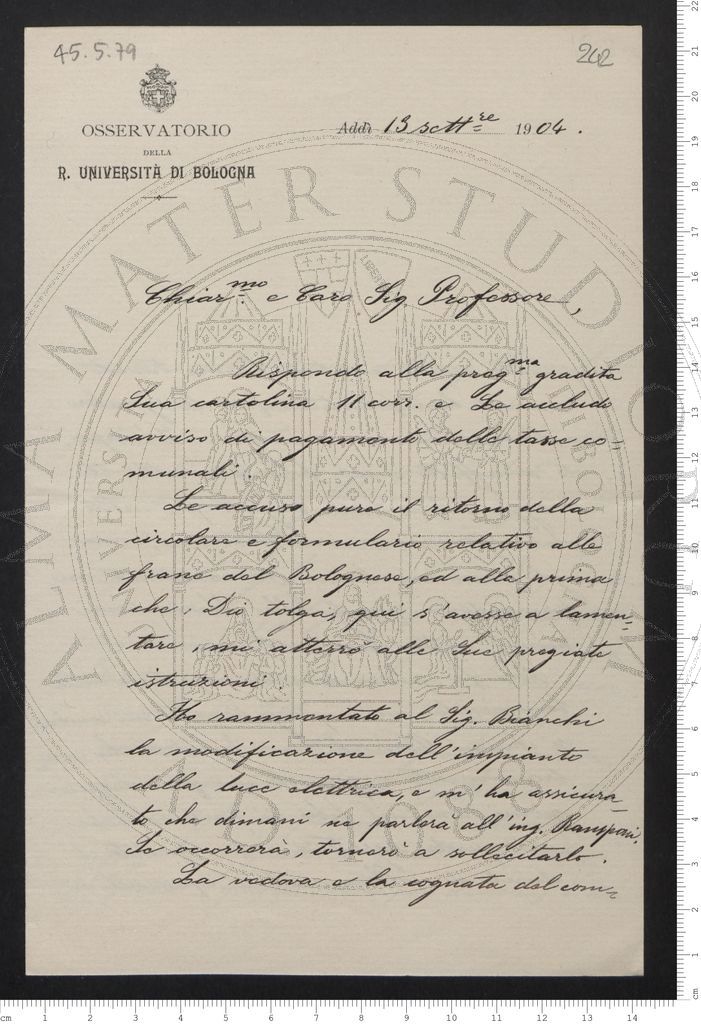 45.5.79
242
OSSERVATORIO
DELLA
R. UNIVERSITÀ DI BOLOGNA
Addì 13 settre 1904.
Chiar.mo e Caro Sig Professore,
Rispondo alla preg.ma gradita
Sua cartolina 11 corr. e Le accludo
avviso di pagamento delle tasse co-
munali.
Le accuso pure il ritorno della
circolare e formulario relativo alle
frane del Bolognese, ed alla prima
che, Dio tolga, qui s'avesse a lamen-
tare, mi atterrò alle Sue pregiate
istruzioni.
Ho rammentato al Sig. Bianchi
la modificazione dell'impianto
della luce elettrica, e m'ha assicura-
to che dimani ne parlerà all'ing.
Se occorrerà, tornerò a sollecitarlo.
La vedova e la cognata del com-
ALMA MATER STUDIORUM
A.D. 1088